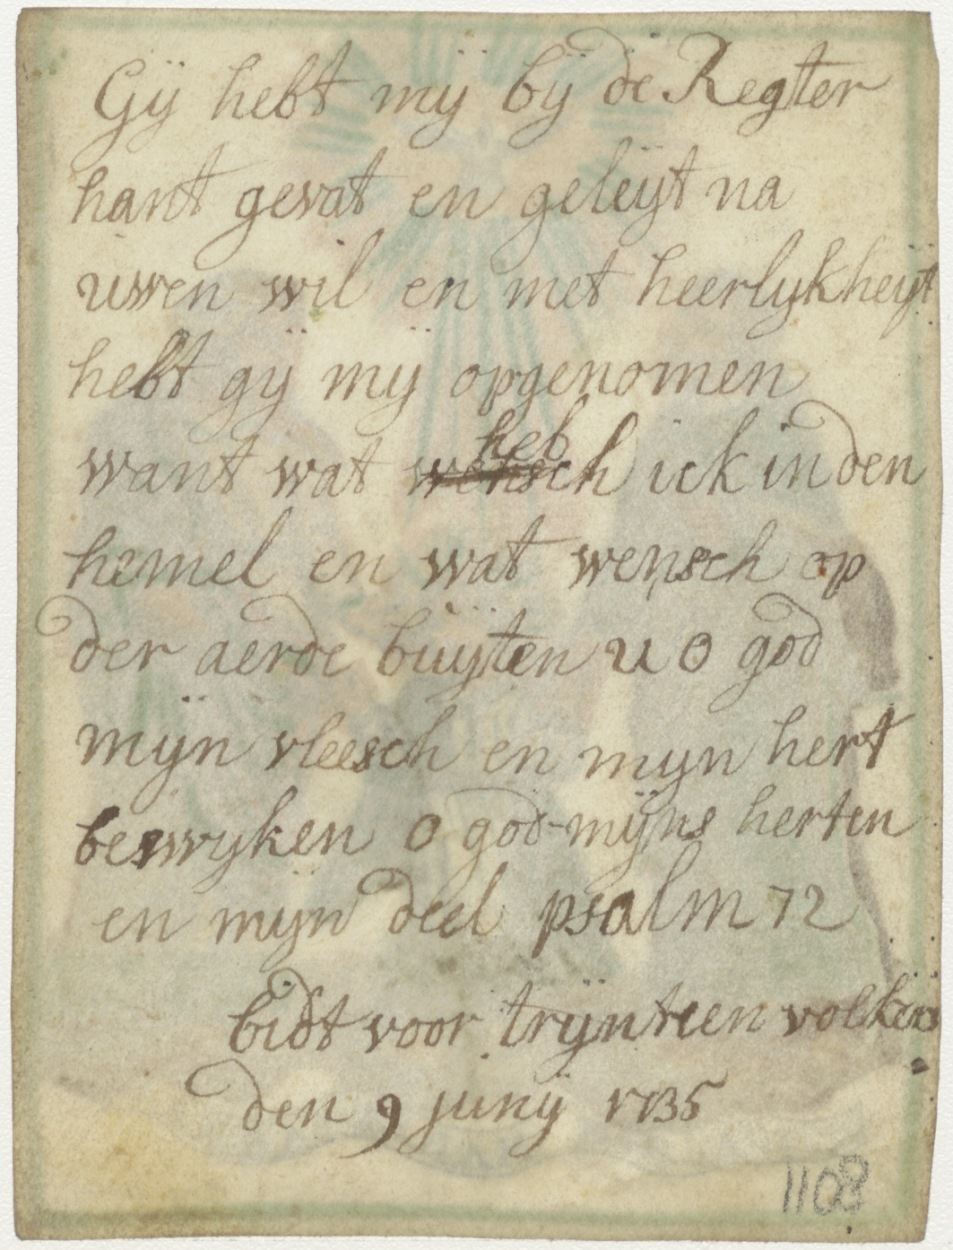 Gÿ hebt mÿ bÿ de Regter
hant gevat en geleÿt na
uwen wil en met heerlykheÿt
hebt gÿ mÿ opgenomen
heb
want wat wensch ick in den
hemel en wat wensch op
der aerde buÿten u O god
mÿn vleesch en mÿn hert
beswyken O god mÿns herten
en mÿn deel psalm 72
bidt voor trÿntien volkers
den 9 junÿ 1735
1108